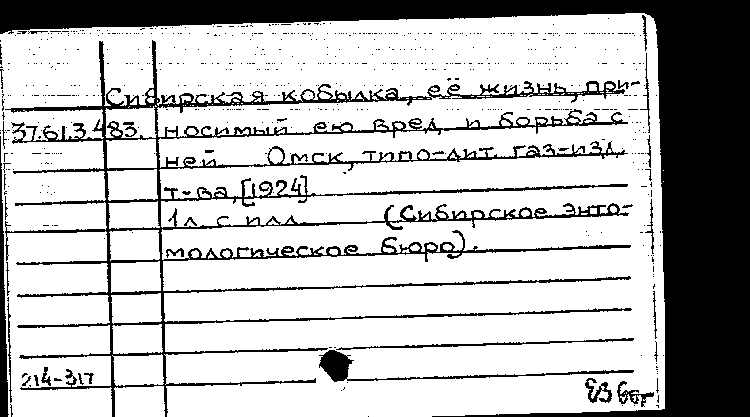 Сибирская кобылка, её жизнь, при-
37.61.3.483. носимый ею вред и борьба с
ней Омск, типо-лит. газ-изд.
т-ва, [1924].
1л. с илл. (Сибирское энто-
мологическое бюро).
214-317